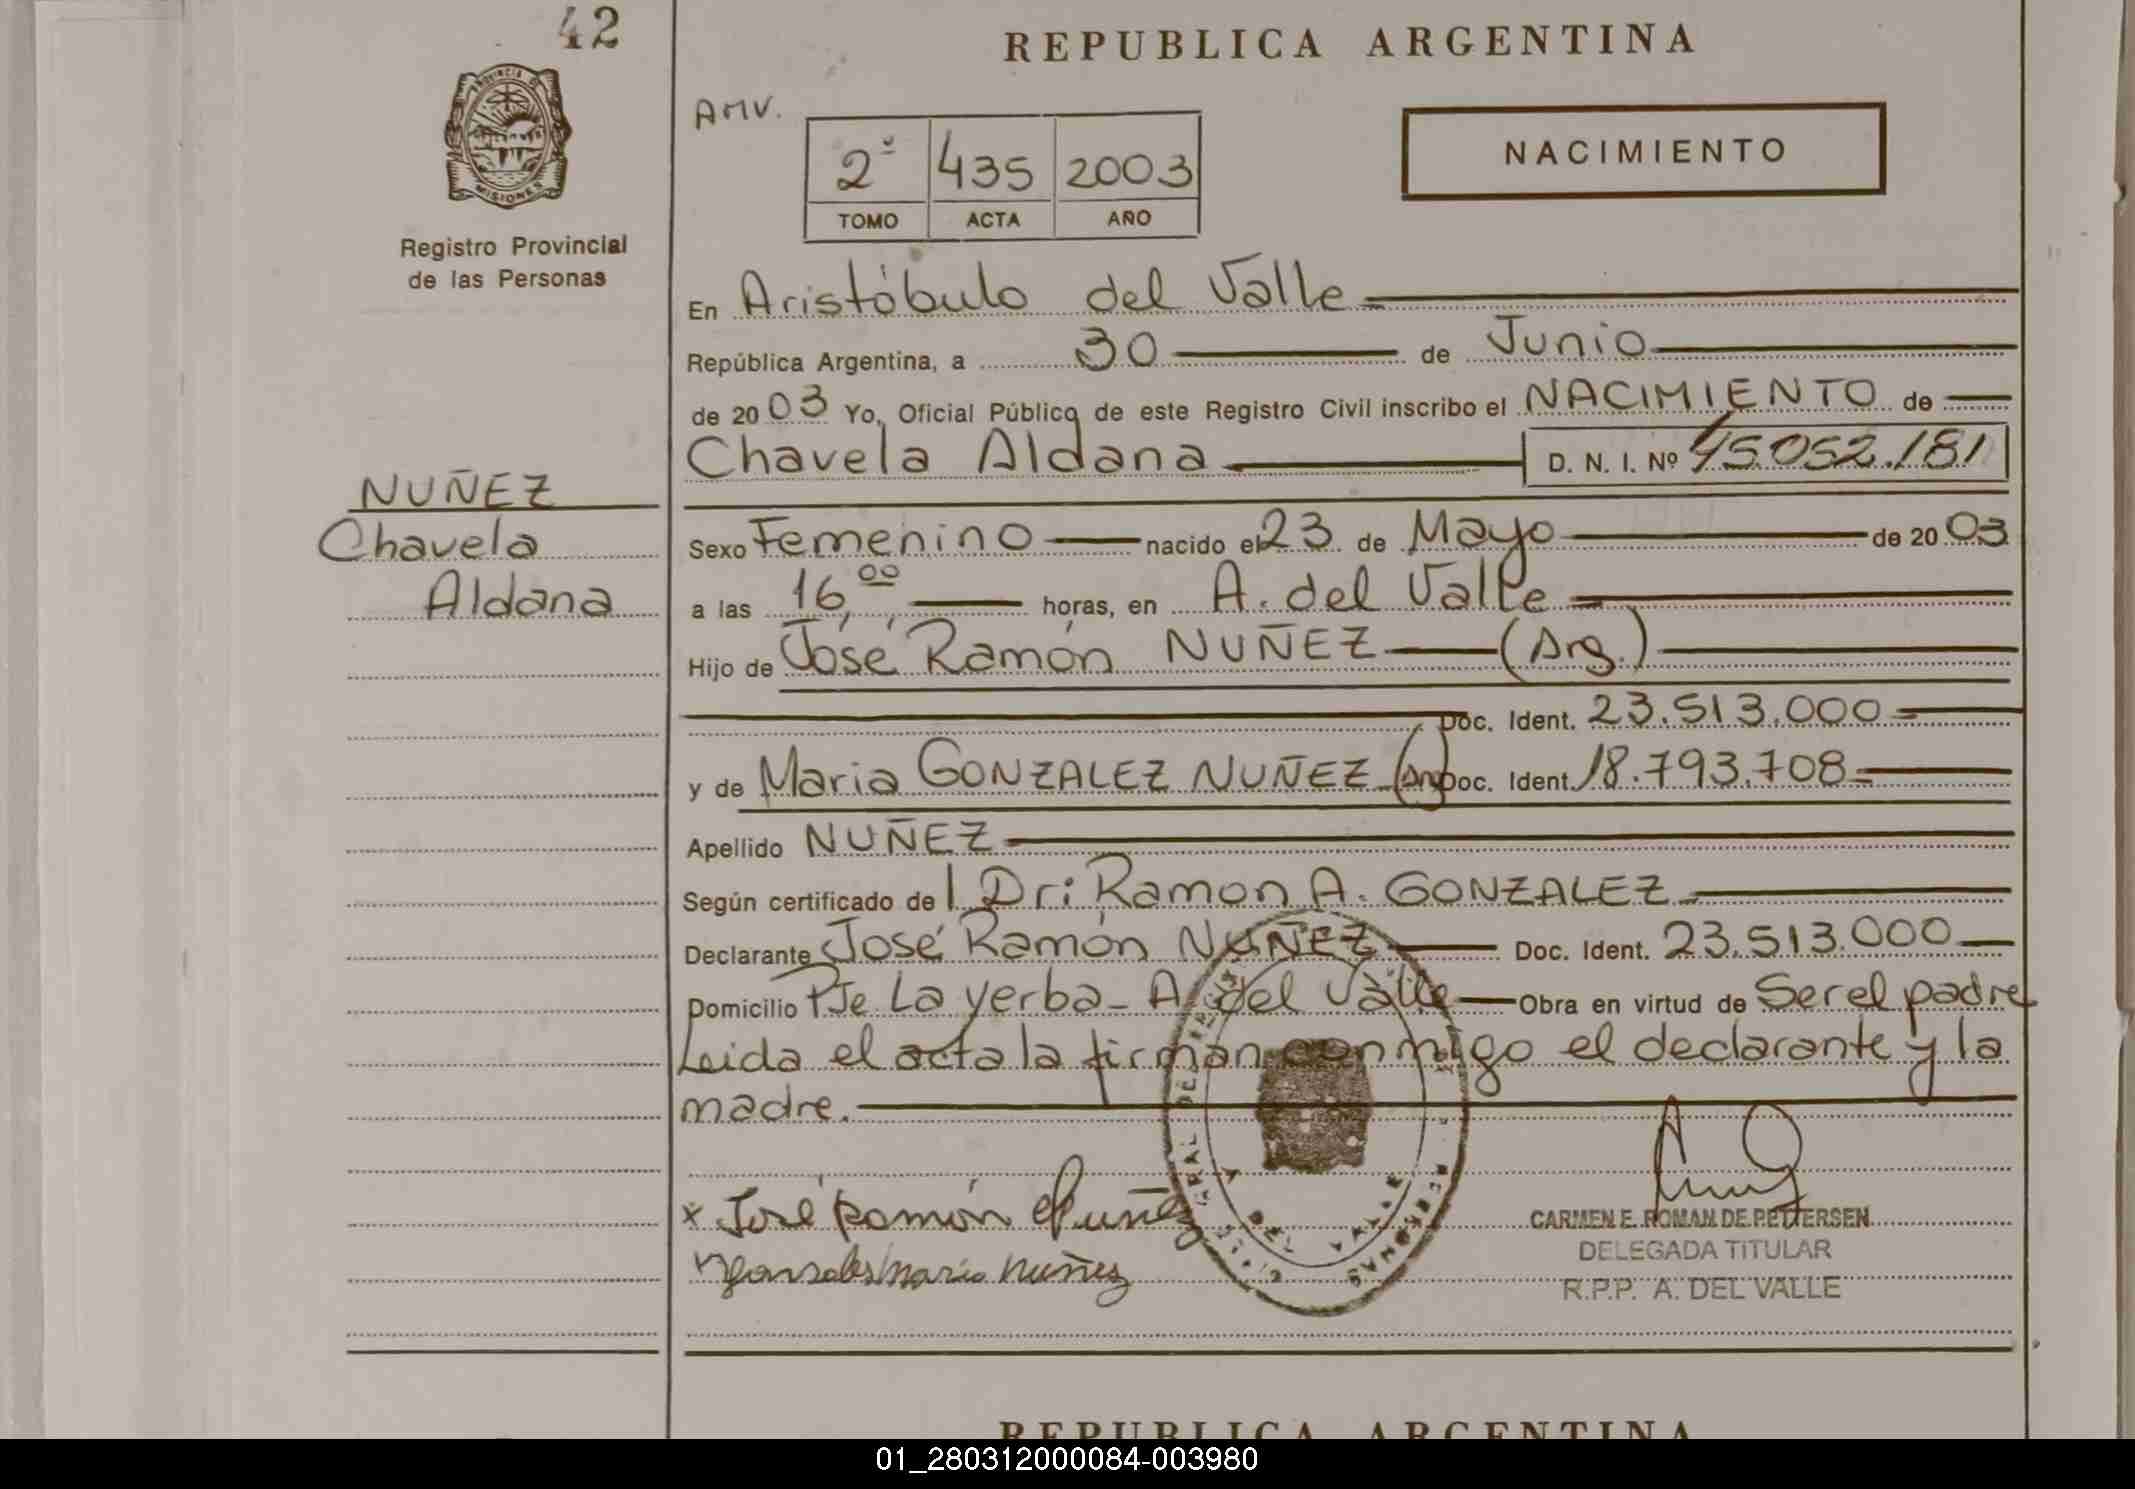 42
REPUBLICA ARGENTINA
PROVINCIA DE
MISIONES
Registro Provincial
de las Personas
AMV.
2º 435 2003
TOMO ACTA AÑO
NACIMIENTO
En Aristóbulo del Valle
República Argentina, a 30 de Junio
de 2003 Yo, Oficial Público de este Registro Civil inscribo el NACIMIENTO de
Chavela Aldana D. N. I. Nº 45.052.181
NUÑEZ
Chavela
Aldana
Sexo Femenino nacido el 23 de Mayo de 2003
a las 16,00 horas, en A. del Valle
Hijo de José Ramón NUÑEZ (Arg.)
Doc. Ident. 23.513.000
y de Maria GONZALEZ NUÑEZ (Arg) Doc. Ident. 18.793.708
Apellido NUÑEZ
Según certificado de l Dr: Ramon A. GONZALEZ
Declarante José Ramón NUÑEZ Doc. Ident. 23.513.000
Domicilio Pje La yerba - A. del Valle Obra en virtud de Ser el padre
Leida el acta la firman conmigo el declarante y la
madre.
x José Ramón Nuñez
Gonsales Maria Nuñez
DEL VALLE
PERSONAS
CARMEN E. ROMAN DE PETTERSEN
DELEGADA TITULAR
R.P.P. A. DEL VALLE
REPUBLICA ARGENTINA
01_280312000084-003980